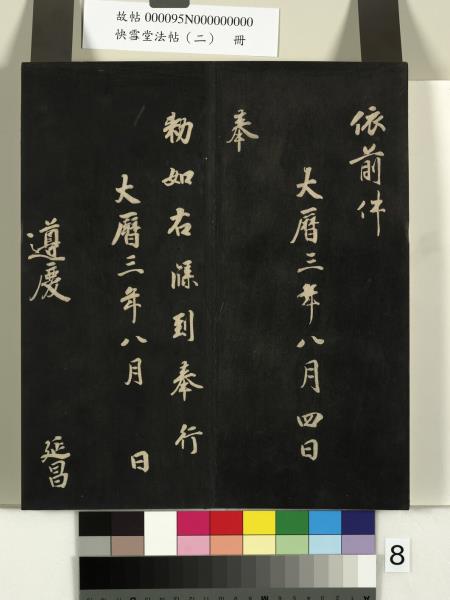 故帖 000095N000000000
快雪堂法帖（二） 冊
依前件
大曆三年八月四日
奉
勑如右牒到奉行
大曆三年八月 日
遵慶
延昌
8